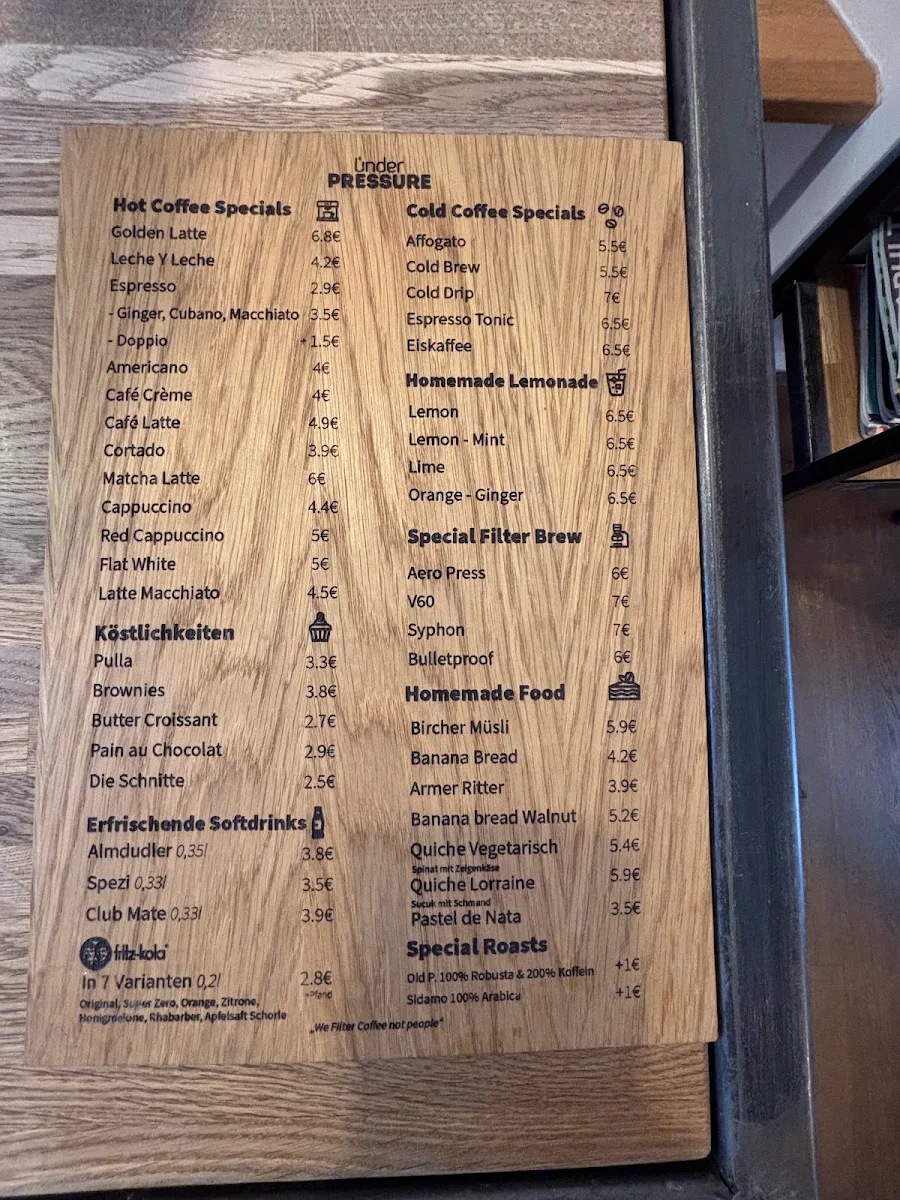 ünder
PRESSURE
Hot Coffee Specials
Golden Latte 6.8€
Leche Y Leche 4.2€
Espresso 2.9€
- Ginger, Cubano, Macchiato 3.5€
- Doppio +1.5€
Americano 4€
Café Crème 4€
Café Latte 4.9€
Cortado 3.9€
Matcha Latte 6€
Cappuccino 4.4€
Red Cappuccino 5€
Flat White 5€
Latte Macchiato 4.5€
Köstlichkeiten
Pulla 3.3€
Brownies 3.8€
Butter Croissant 2.7€
Pain au Chocolat 2.9€
Die Schnitte 2.5€
Erfrischende Softdrinks
Almdudler 0,35l 3.8€
Spezi 0,33l 3.5€
Club Mate 0,33l 3.9€
fritz-kola
In 7 Varianten 0,2l 2.8€
+Pfand
Original, Super Zero, Orange, Zitrone,
Honigmelone, Rhabarber, Apfelsaft Schorle
Cold Coffee Specials
Affogato 5.5€
Cold Brew 5.5€
Cold Drip 7€
Espresso Tonic 6.5€
Eiskaffee 6.5€
Homemade Lemonade
Lemon 6.5€
Lemon - Mint 6.5€
Lime 6.5€
Orange - Ginger 6.5€
Special Filter Brew
Aero Press 6€
V60 7€
Syphon 7€
Bulletproof 6€
Homemade Food
Bircher Müsli 5.9€
Banana Bread 4.2€
Armer Ritter 3.9€
Banana bread Walnut 5.2€
Quiche Vegetarisch 5.4€
Spinat mit Zeigenkäse
Quiche Lorraine 5.9€
Sucuk mit Schmand
Pastel de Nata 3.5€
Special Roasts
Old P. 100% Robusta & 200% Koffein +1€
Sidamo 100% Arabica +1€
„We Filter Coffee not people"